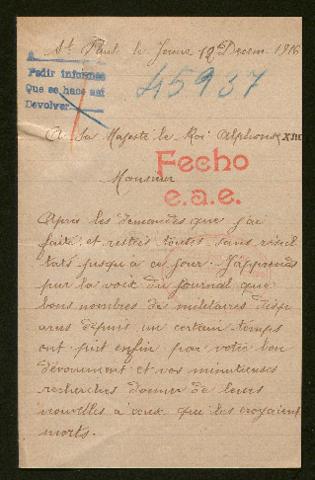 St Paul le Jeune 12 Décem. 1916
A
Pedir informes
Que se hace así
Devolver
45937
A Sa Majesté le Roi Alphonse XIII
Fecho
e.a.e.
Monsieur
Après les demandes que j'ai
faite et restées toutes sans résul
tats jusqu'à ce jour. J'apprends
par la voix du journal que
bons nombres de militaires disp
arus depuis un certain temps
ont put enfin par votre bon
dévouement et vos minutieuses
recherches donner de leurs
nouvelles à ceux qui les croyaient
morts.